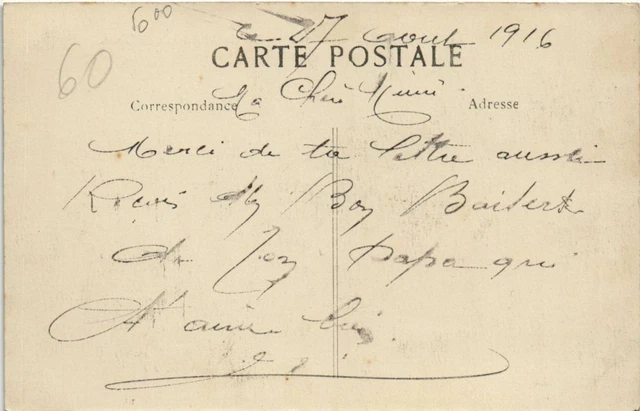 6 00
60
Le 27 Aout 1916
CARTE POSTALE
Correspondance
Adresse
Ma Cheri Mimi
Merci de ta lettre aussi
Recois My Bon Baisers
de Ton Papa qui
t'aime bien